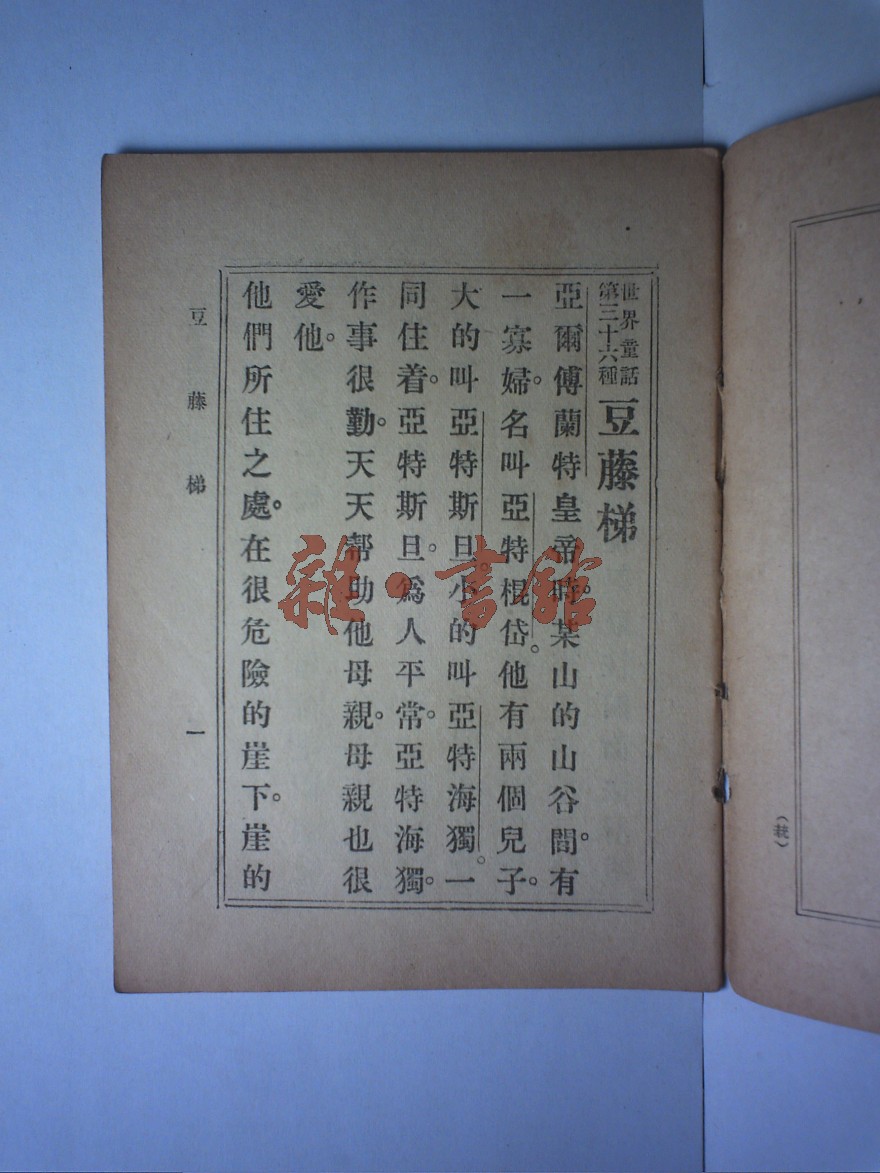 世界童話
第三十六種
豆藤梯
亞爾傅蘭特皇帝時。某山的山谷間。有
一寡婦。名叫亞特棍岱。他有兩個兒子。
大的叫亞特斯旦。小的叫亞特海獨。一
同住着。亞特斯旦。爲人平常。亞特海獨。
作事很勤。天天幫助他母親。母親也很
愛他。
他們所住之處。在很危險的崖下。崖的
豆藤梯
一
雜·書館